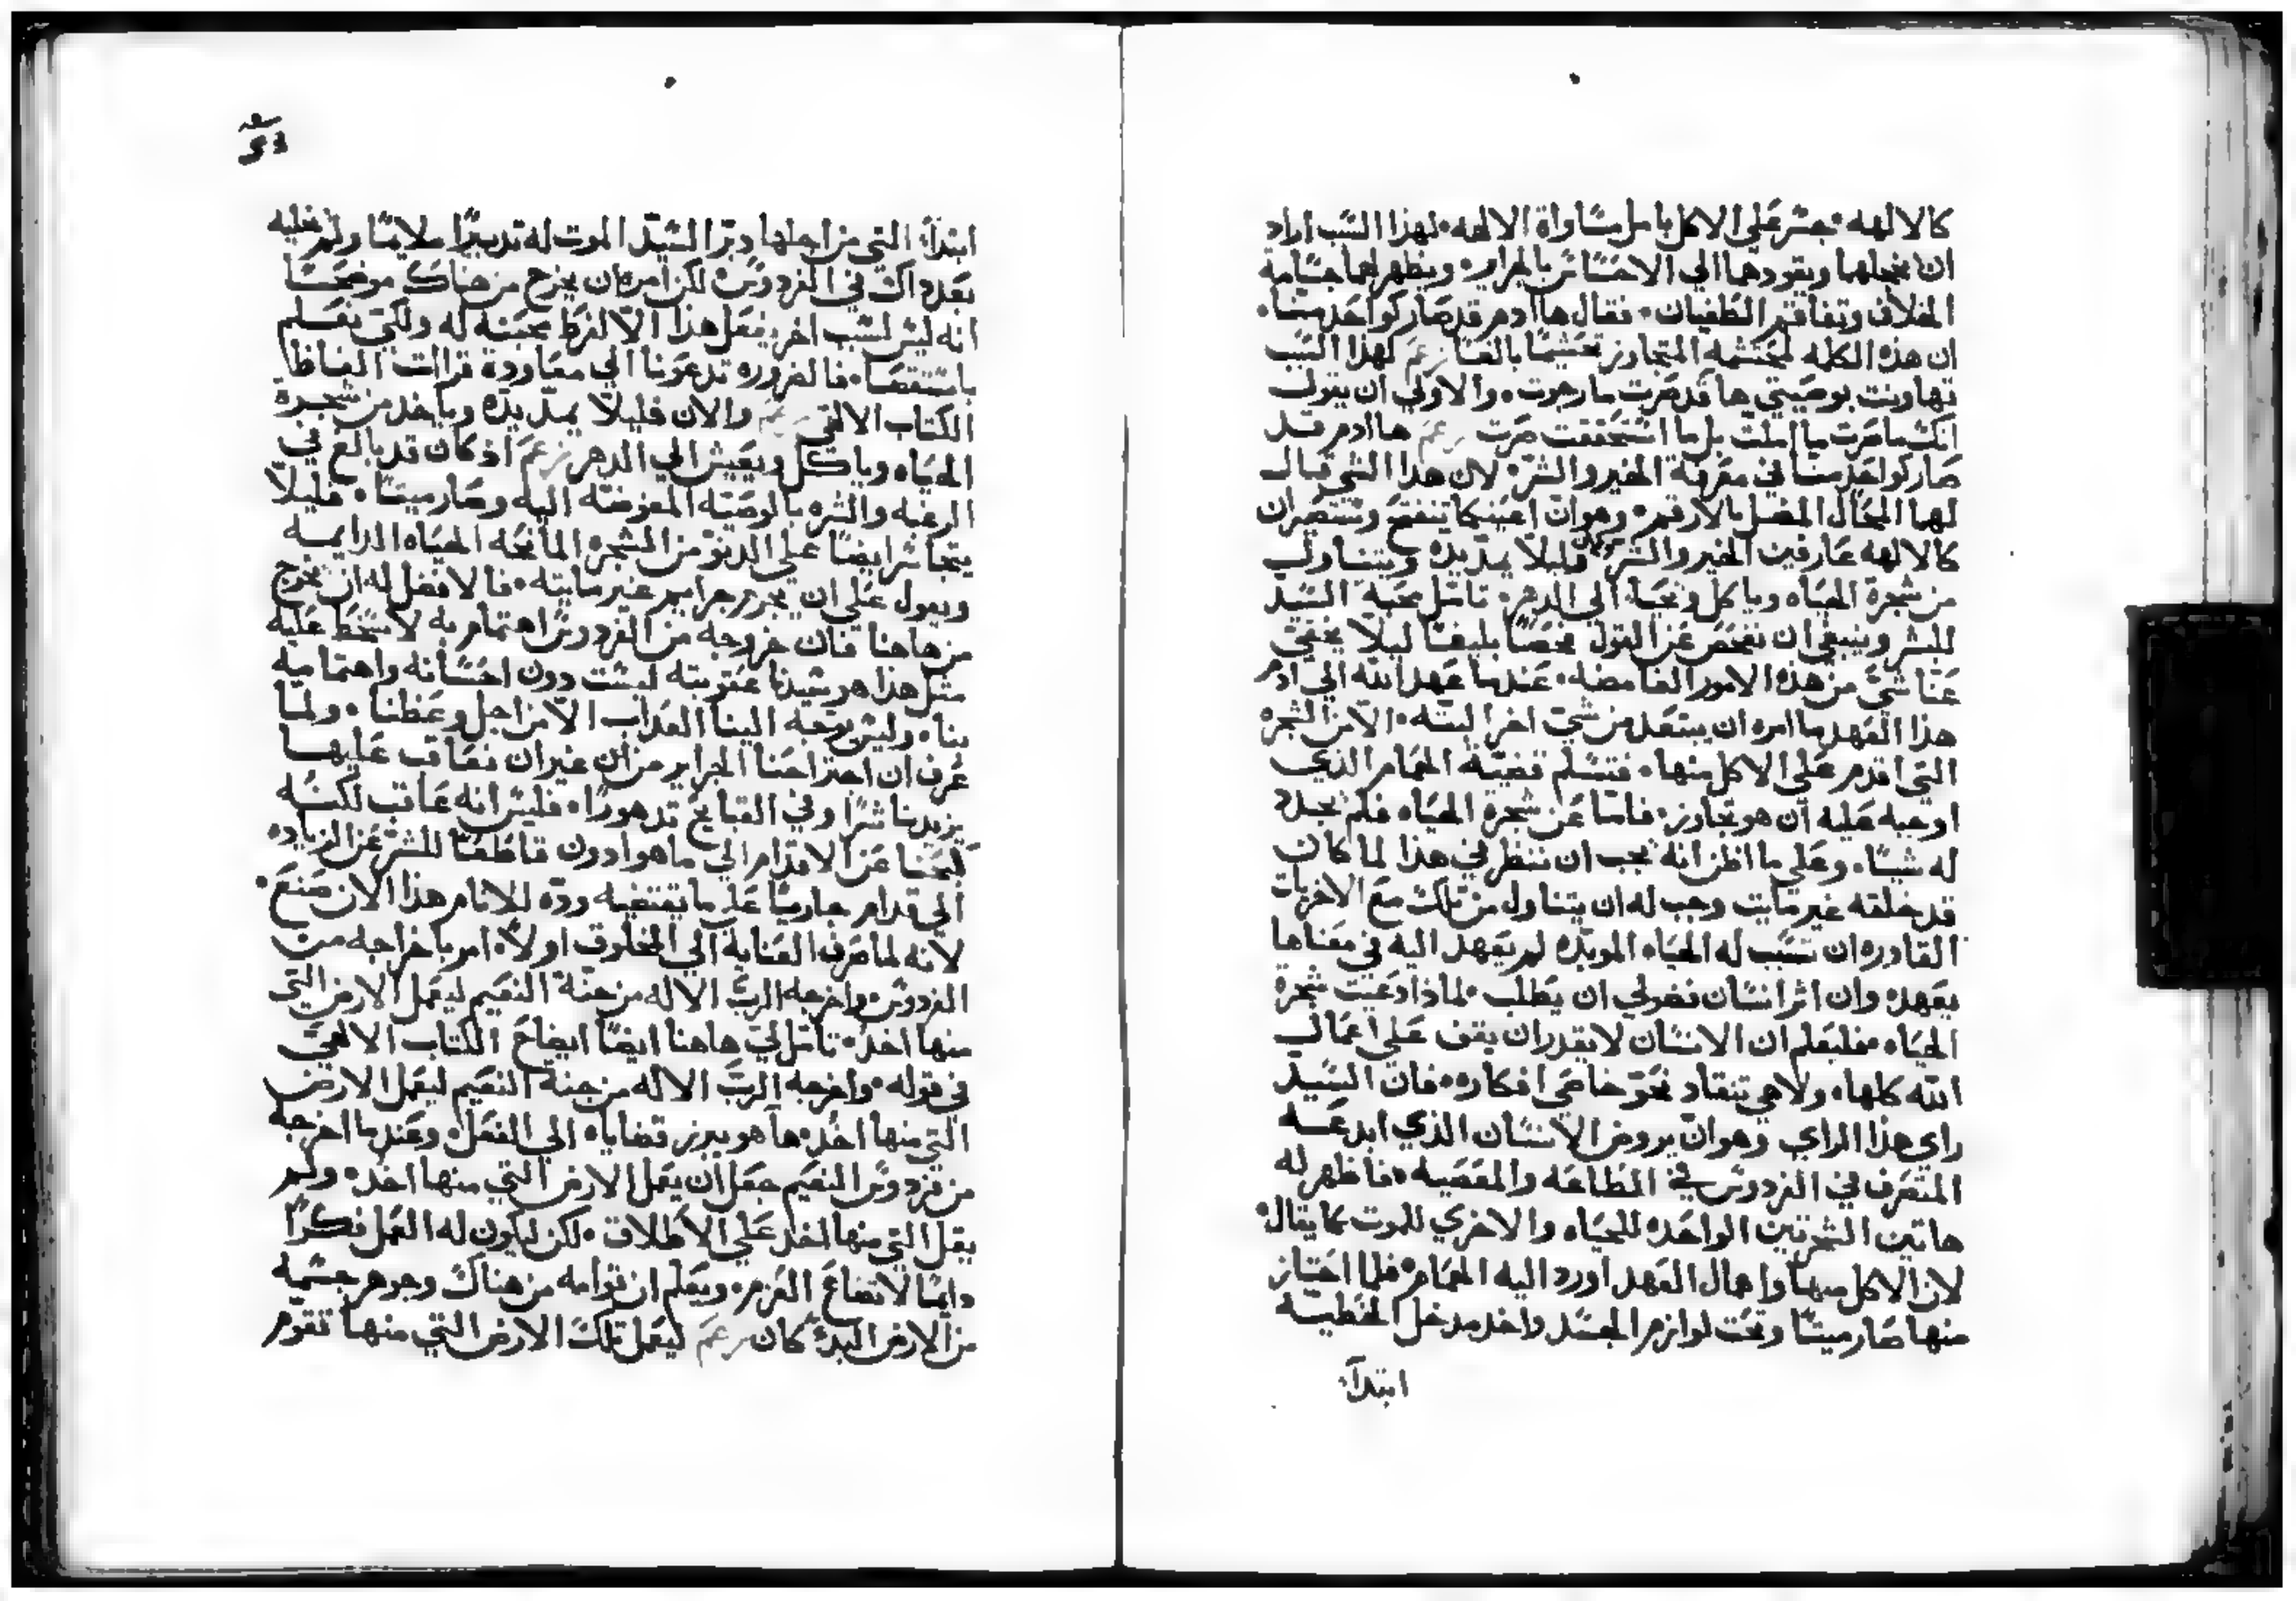 كالالهه · جسر علي الاكل بامل مساواة الالهه · لهذا السبب اراد
ان يخجلهما ويقودهما الي الاحساس بالجراير · ويظهر لهما جسامة
الخلاف وتفاقم الطغيان · فقال ها ادم قد صار كواحد منا ·
ان هذه الكلمه لمحتشمه المتجاوز تحشيما بالغا زعم لهذا السبب
تهاونت بوصيتي ها قد صرت ما رجوت · والاولي ان يقول
انك ما صرت ما املت بل ما استحققت صرت زعم ها ادم قد
صار كواحد منا في معرفة الخير والشر · لان هذا الشي قال
لهما المحال المضل بالارقم · وهو ان اعينكما تنفتح وتستصيران
كالالهه عارفين الخير والشر · قليلا يمد يده ويتناول
من شجرة الحياه وياكل ويحيا الي الدهر · تامل محبة السيد
للبشر وينبغي ان نفحص عن القول فحصا بليغا ليلا يختفي
عنا شي من هذه الامور الغامضه · عندما عهد الله الي ادم
هذا العهد ما امره ان يبتعد من شي اخر البته · الا من الشجره
التي اقدم علي الاكل منها · فتسلم قضية الحمام الذي
اوجبه عليه ان هو تجاوز · فاما عن شجرة الحياه فلم يحدد
له شيا · وعلي ما اظن انه يجب ان ننظر في هذا لما كان
قد خلقه غير مايت وجب له ان يتناول من تلك مع الاخريات
القادره ان تسبب له الحياه الموبده لم يعهد اليه في معناها
بعهده وان اثر انسان فضولي ان يطلب · لماذا دعيت شجرة
الحياه · فليعلم ان الانسان لا يقدر ان يقف علي اعمال
الله كلها · ولا هي تنقاد نحو خاصي افكاره · فان السيد
راي هذا الراي وهو ان يروض الانسان الذي ابدعه
المتصرف في الفردوس في الطاعه والمعصيه · فاظهر له
هاتين الشجرتين الواحده للحياه والاخري للموت كما يقال
لان الاكل منها واهمال العهد اورد اليه الحمام · فلما اختار
منها صار ميتا وتحت لوازم الجسد واخد مدخل الخطيه
ابتداء
ابتداء التي من اجلها دبر السيد الموت له تدبيرا ملايما ولم يخليه
بعد داك في الفردوس لكن امره ان يخرج من هناك موضحا
انه ليس لسبب اخر يفعل هذا الا لفرط محبته له ولكي نعلم
باستقصا · فالضروره تدعونا الي معاودة قراات الفاظ
الكتاب الالهي زعم والان قليلا يمد يده وياخد من شجرة
الحياه وياكل ويعيش الي الدهر زعم اذ كان قد بالغ في
الرغبه والشره بالوصيه المفوضه اليه وصار ميتا · قليلا
يتجاسر ايضا علي الدنو من الشجره المانحه الحياه الدايمه
ويعول علي ان يجرم جراير غير مايته · فالافضل له ان يخرج
من هاهنا فان خروجه من الفردوس اهتمام به لا سخط عليه
مثل هذا هو سيدنا عقوبته ليست دون احسانه واهتمامه
بنا · وليس يتجه الينا العداب الا من اجل وعظنا · ولما
عرف ان اجتراحنا الجراير من غير ان نعاقب عليها
يزيدنا شرا وفي القبايح تدهورا · فليس انه عاقب لكنه
كبحنا عن الاقدام الي ما هو ادون قاطعا للشر عن الزياده
الي قدام جاريا علي ما تقتضيه وده للانام هذا الان صنع ·
لانه لما صرف العنايه الي المخلوق اولا · امر باخراجه من
الفردوس واخرجه الرب الاله من جنة النعيم ليعمل الارض التي
منها اخد · تامل لي هاهنا ايضا ايضاح الكتاب الالهي
في قوله · واخرجه الرب الاله من جنة النعيم ليعمل الارض
التي منها اخد · ها هو يبرز قضاياه الي الفعل · وعندما اخرجه
من فردوس النعيم جعل ان يعمل الارض التي منها اخد · ولم
يقل التي منها اخد علي الاطلاق · لكن ليكون له العمل فكرا
دايما لاتضاع العزم · ويعلم ان قوامه من هناك وجوهر جسمه
من الارض البدء كان زعم ليعمل تلك الارض التي منها تقوم